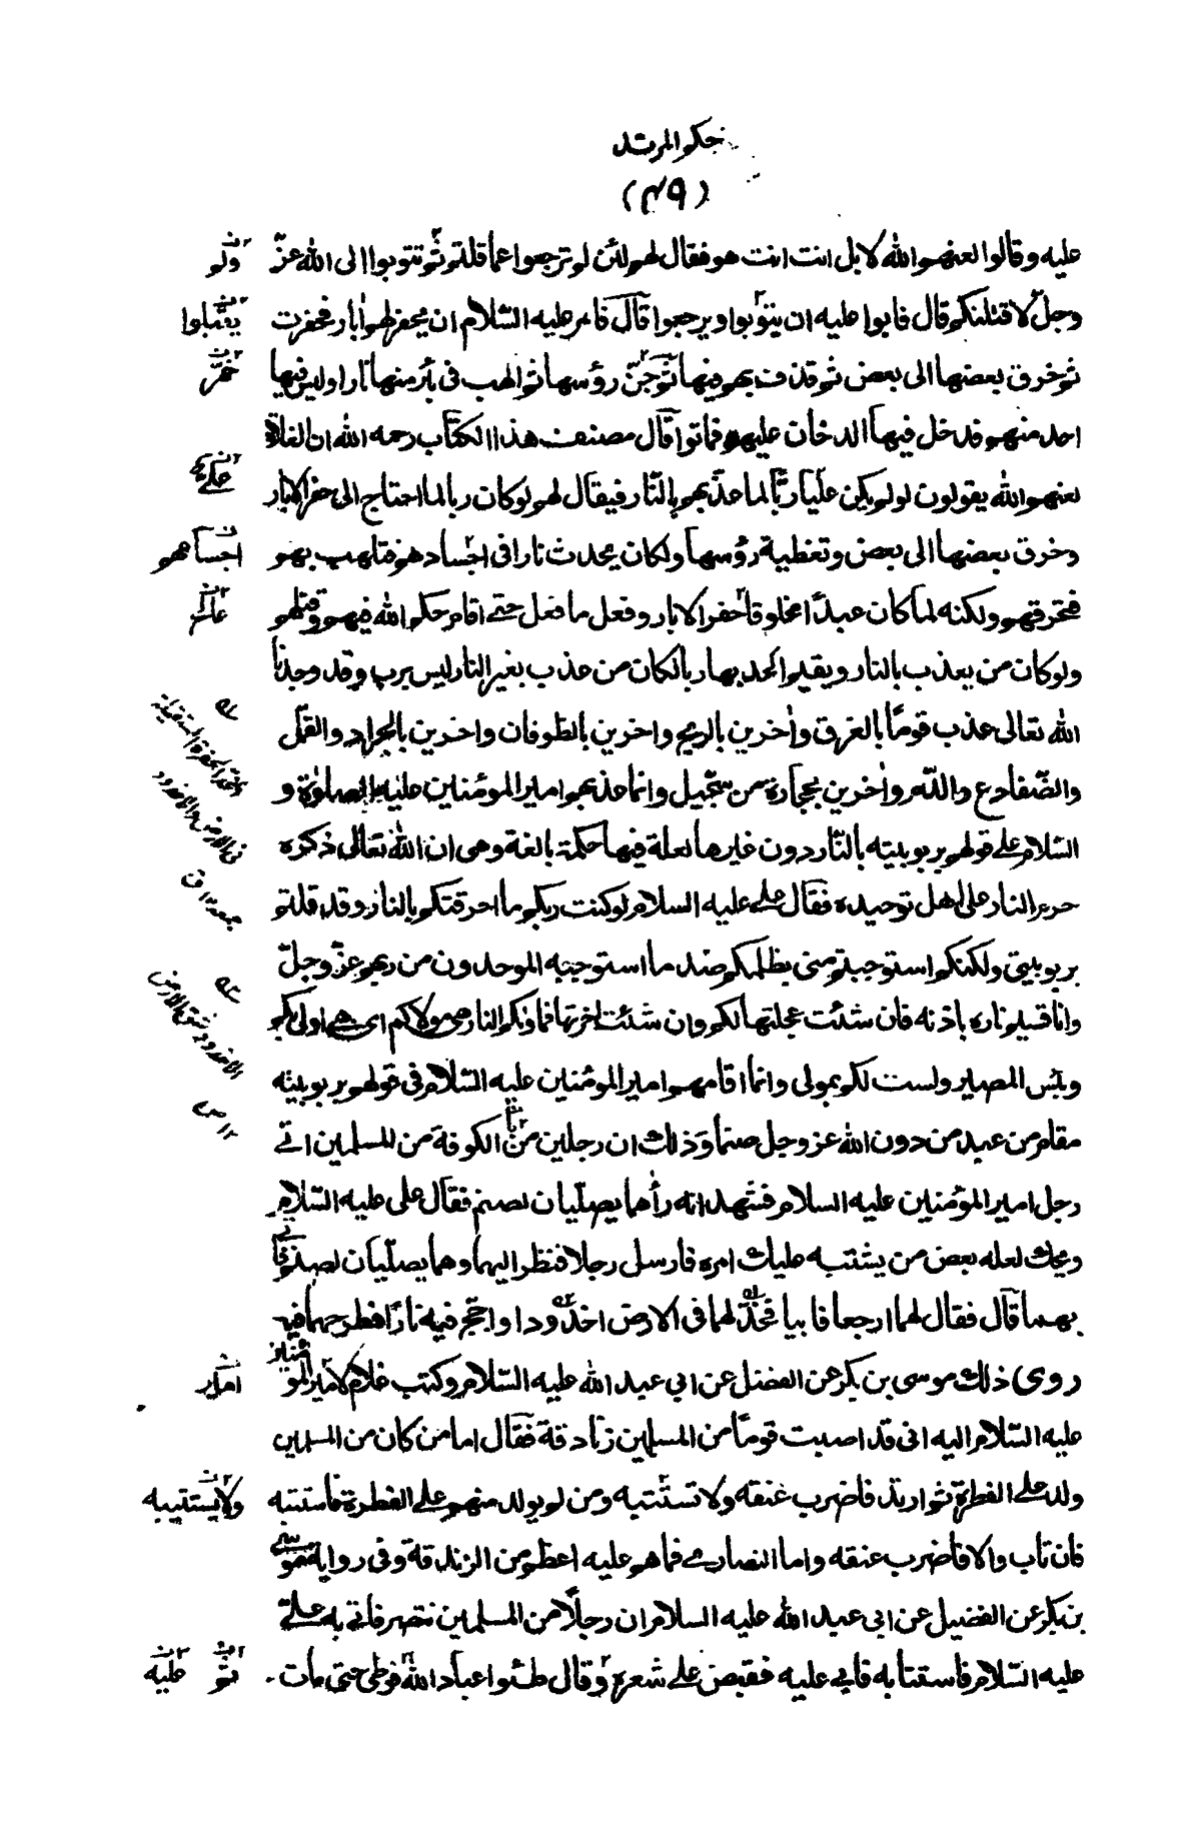 حكم المرتد
(٤٩)
عليه وقالوا لعنهم الله لا بل انت انت هو فقال لهم لئن لم ترجعوا عما قلتم ثم تتوبوا الى الله عزّ
وجلّ لاقتلنكم قال فابوا عليه ان يتوبوا ويرجعوا قال فامر عليه السّلام ان يحفر لهم اٰبار فحفرت
ثم خرق بعضها الى بعض ثم قذف بهم فيها ثم جنّ رؤسها ثم الهب فى بئر منها نارا وليس فيها
احد منهم فدخل فيها الدخان عليهم فماتوا قال مصنف هذا الكتاب رحمه الله ان الغلاة
لعنهم الله يقولون لو لم يكن علىّ ربّا لما عذّبهم بالنّار فيقال لهم لو كان ربا لما احتاج الى حفر الابار
وخرق بعضها الى بعض وتغطية رؤسها ولكان يحدث نارا فى اجسادهم فتلهب بهم
فتحرقهم ولكنه لما كان عبدًا مخلوقا حفر الابار وفعل ما فعل حتے اقام حكم الله فيهم وقتلهم
ولو كان من يعذب بالنار ويقيم الحد بها ربا لكان من عذب بغير النار ليس برب وقد وجدنا
الله تعالى عذب قومًا بالغرق واٰخرين بالريح واخرين بالطوفان واخرين بالجراد والقمّل
والضّفادع والدّم واٰخرين بحجارة من سجّيل وانما عذبهم امير المومنين عليه الصلوٰة و
السّلام علے قولهم بربوبيته بالنّار دون غيرها لعلة فيها حكمة بالغة وهى ان الله تعالى ذكره
حرم النار على اهل توحيده فقال علے عليه السلام لو كنت ربكم ما احرقتكم بالنار وقد قلتم
بربوبيتى ولكنكم استوجبتم منى بظلمكم ضد ما استوجبه الموحدون من ربهم عزّ وجلّ
وانا قسيم ناره باذنه فان شئت عجلتها لكم وان شئت اخرتها فماوٰكم النار هى مولاكم اى هى اولى بكم
وبئس المصير ولست لكم بمولى وانما اقامهم امير المومنين عليه السّلام فى قولهم بربوبيته
مقام من عبد من دون الله عز وجل صنما وذلك ان رجلين من الكوفة من المسلمين اتى
رجل امير المؤمنين عليه السلام فشهد انه راٰهما يصلّيان لصنم فقال على عليه السّلام
ويحك لعله بعض من يشتبه عليك امره فارسل رجلا فنظر اليهما وهما يصلّيان لصنم فاتى
بهما قال فقال لهما ارجعا فابيا فخدّ لهما فى الارض اخدودا واجّج فيه نارًا فطرحهما فيه
روى ذلك موسى بن بكر عن الفضل عن ابي عبد الله عليه السّلام وكتب غلام لامير المومنين
عليه السّلام اليه انى قد اصبت قومًا من المسلمين زنادقة فقال اما من كان من المسلمين
ولد علے الفطرة ثم ارتد فاضرب عنقه ولا تستتبه ومن لم يولد منهم علے الفطرة فاستتبه
فان تاب والا فاضرب عنقه واما النصارى فما هم عليه اعظم من الزندقة وفى رواية موسى
بن بكر عن الفضيل عن ابي عبد الله عليه السلام ان رجلًا من المسلمين تنصر فاتى به علے
عليه السّلام فاستتابه فابى عليه فقبض علے شعره وقال طئوا عباد الله فوطى حتى مات .
ولم
اجسامهم
ولا يستتيبه
ثم عليه